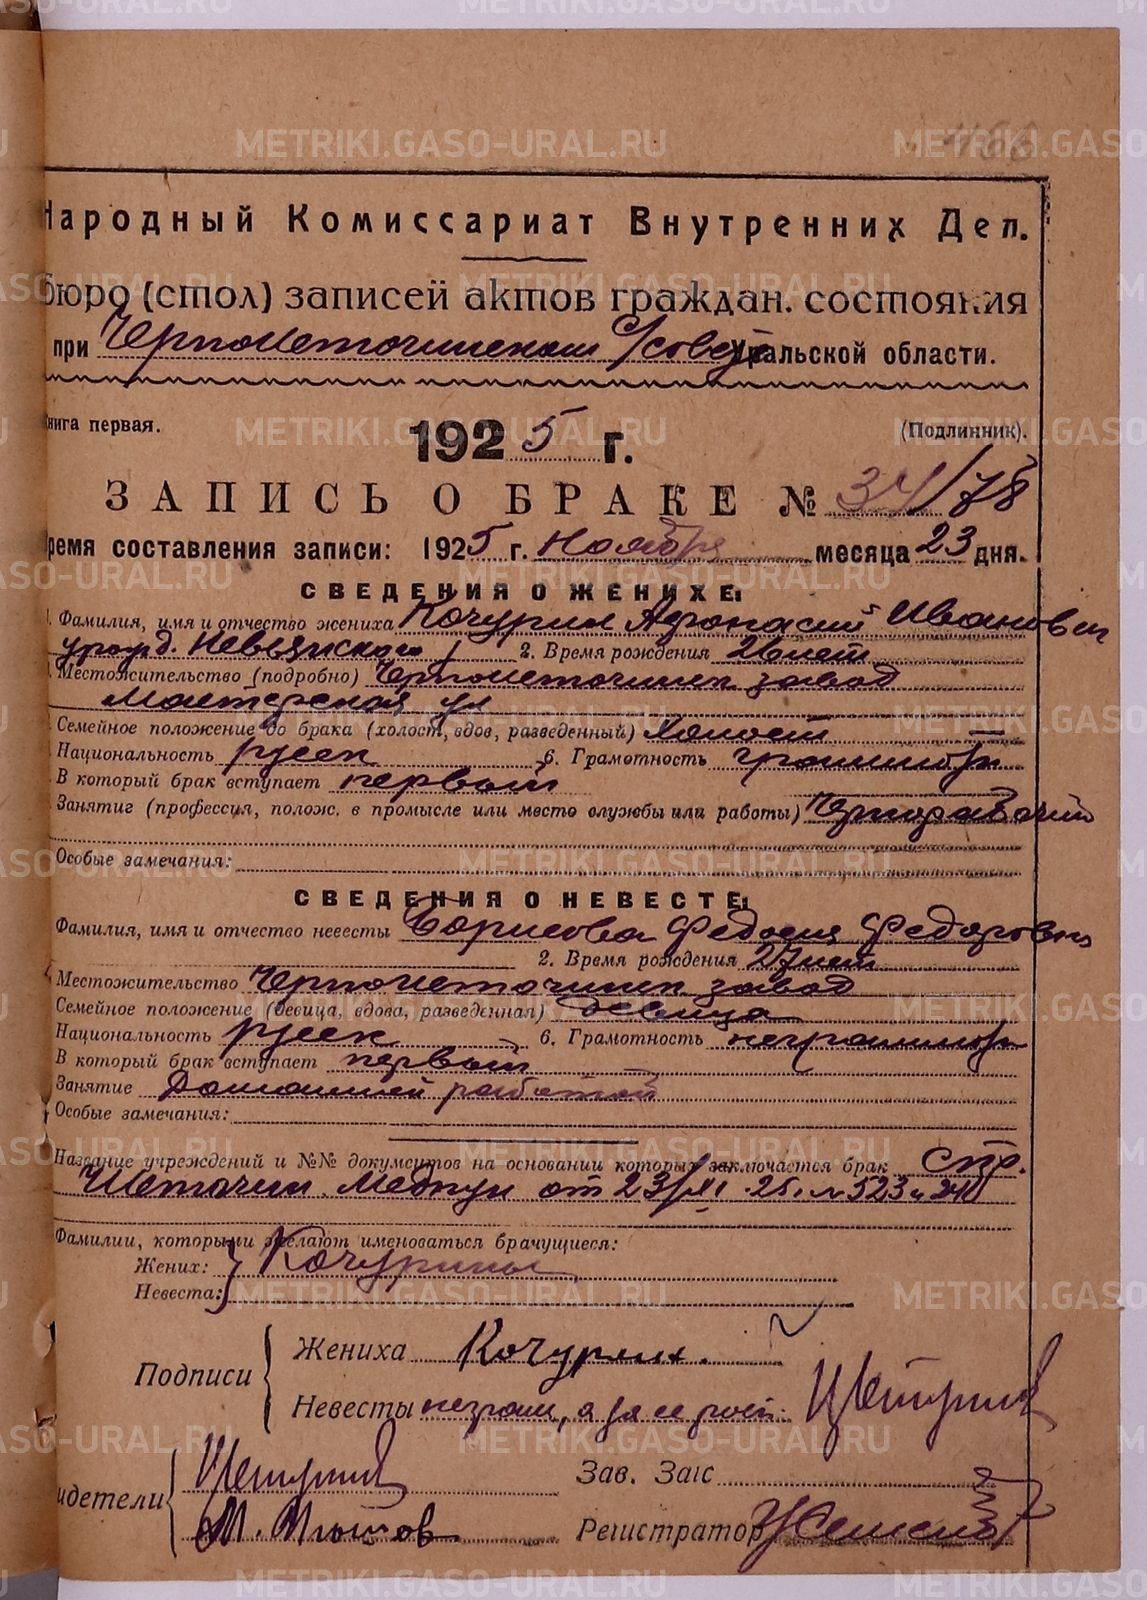 Народный Комиссариат Внутренних Дел.
бюро (стол) записей актов граждан. состояния
при Черноисточинском С/совет Уральской области.
книга первая. (Подлинник).
1925 г.
ЗАПИСЬ О БРАКЕ № 34/78
ремя составления записи: 1925 г. Ноября месяца 23 дня.
СВЕДЕНИЯ О ЖЕНИХЕ:
1. Фамилия, имя и отчество жениха Кочурин Афонасий Иванович
урожд. Невьянского 2. Время рождения 26 лет
Местожительство (подробно) Черноисточинск завод
Мастерская ул
Семейное положение до брака (холост, вдов, разведенный) Холост
Национальность русск 6. Грамотность грамотн
В который брак вступает первый
Занятие (профессия, полож. в промысле или место службы или работы) Чернорабочий
Особые замечания:
СВЕДЕНИЯ О НЕВЕСТЕ:
Фамилия, имя и отчество невесты Борисова Федосия Федоровна
2. Время рождения 27 лет
Местожительство Черноисточинск завод
Семейное положение (девица, вдова, разведенная) девица
Национальность русск 6. Грамотность неграмотн
В который брак вступает первый
Занятие Домашней работой
Особые замечания:
Название учреждений и №№ документов на основании которых заключается брак Спр.
Источин. Медпун от 23/XI 25 г №523 и
Фамилии, которыми желают именоваться брачущиеся:
Жених: } Кочурины
Невеста:
Подписи { Жениха Кочурин.
Невесты неграм, а за се росп.
идетели {
Зав. Загс
М.
Регистратор
METRIKI.GASO-URAL.RU